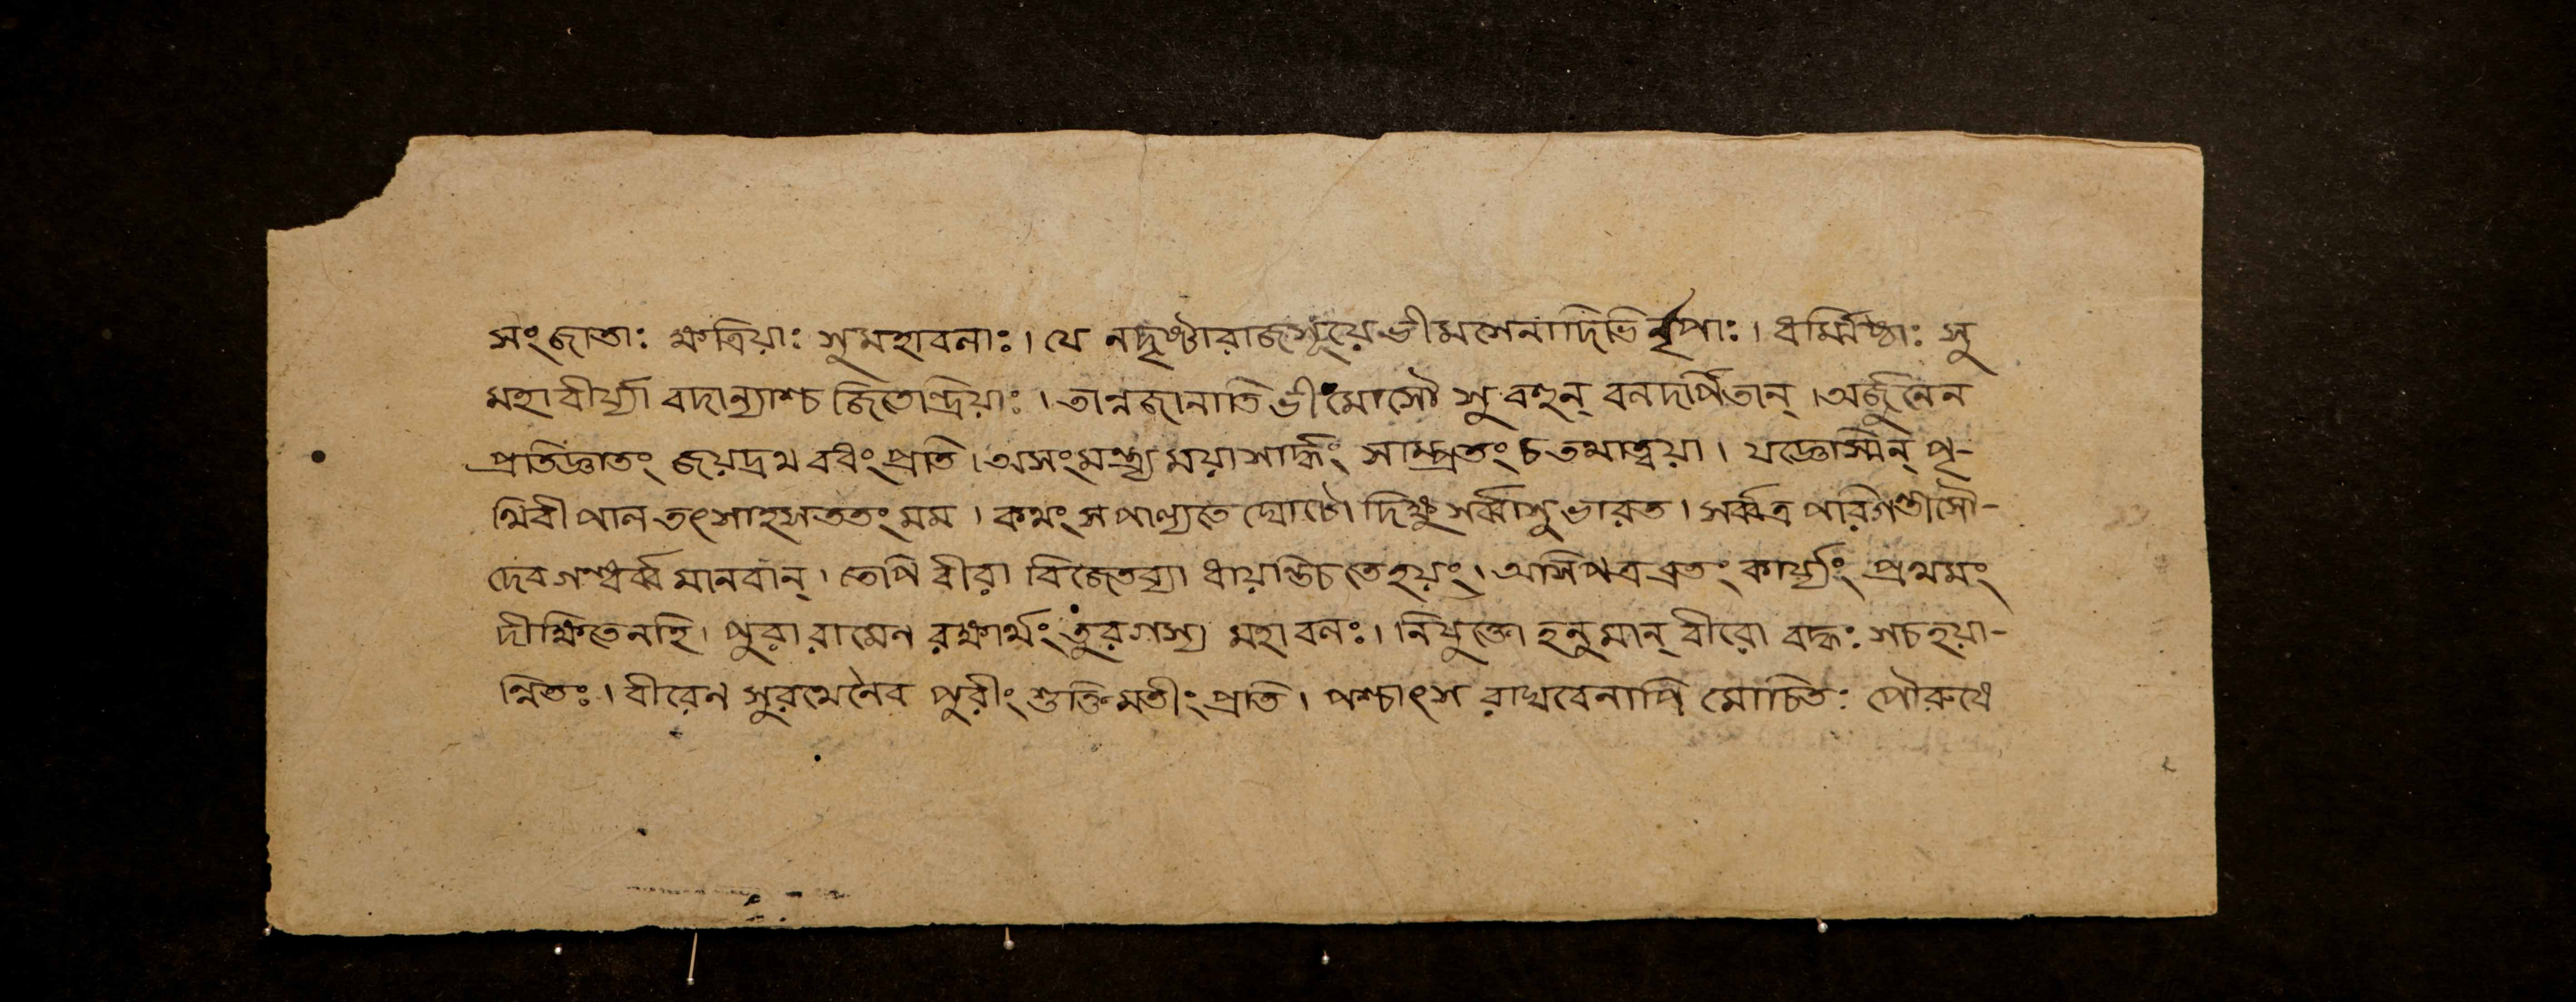 সংজাতাঃ ক্ষত্রিয়াঃ সুমহাবলাঃ। যে নদৃষ্টারাজসূয়েভীমসেনাদিভির্নৃপাঃ। ধর্ম্মিষ্ঠাঃ সু
মহাবীর্য্যা বদান্যাশ্চ জিতেন্দ্রিয়াঃ। তান্নজানাতি ভীমোসৌ সুবহুন্ বলদর্পিতান্। অর্জুনেন
প্রতিজ্ঞাতং জয়দ্রথ বধংপ্রতি। অসংমন্ত্র্য ময়াসার্দ্ধং সাম্প্রতং চ তথাত্বয়া। যজ্ঞোস্মিন্ পৃ-
থিবীপাল তৎসাহসততং মম। কথং সপাল্যতে ঘোটো দিক্ষু সর্ব্বাসুভারত। সর্ব্বত্র পরিগন্তাসৌ-
দেবগন্ধর্ব্ব মানবান্। তেপি বীরা বিজেতব্যা ধায়ন্তিচ তেহয়ং। অসিপত্রব্রতং কার্য্যং প্রথমং
দীক্ষিতেনহি। পুরা রামেণ রক্ষার্থং তুরগস্য মহাবলঃ। নিযুক্তো হনুমান্ বীরো বদ্ধঃ সচহয়া-
ন্বিতঃ। বীরেণ সুরথেনৈব পুরীং শুক্তিমতীং প্রতি। পশ্চাৎস রাঘবেনাপি মোচিতঃ পৌরুষে